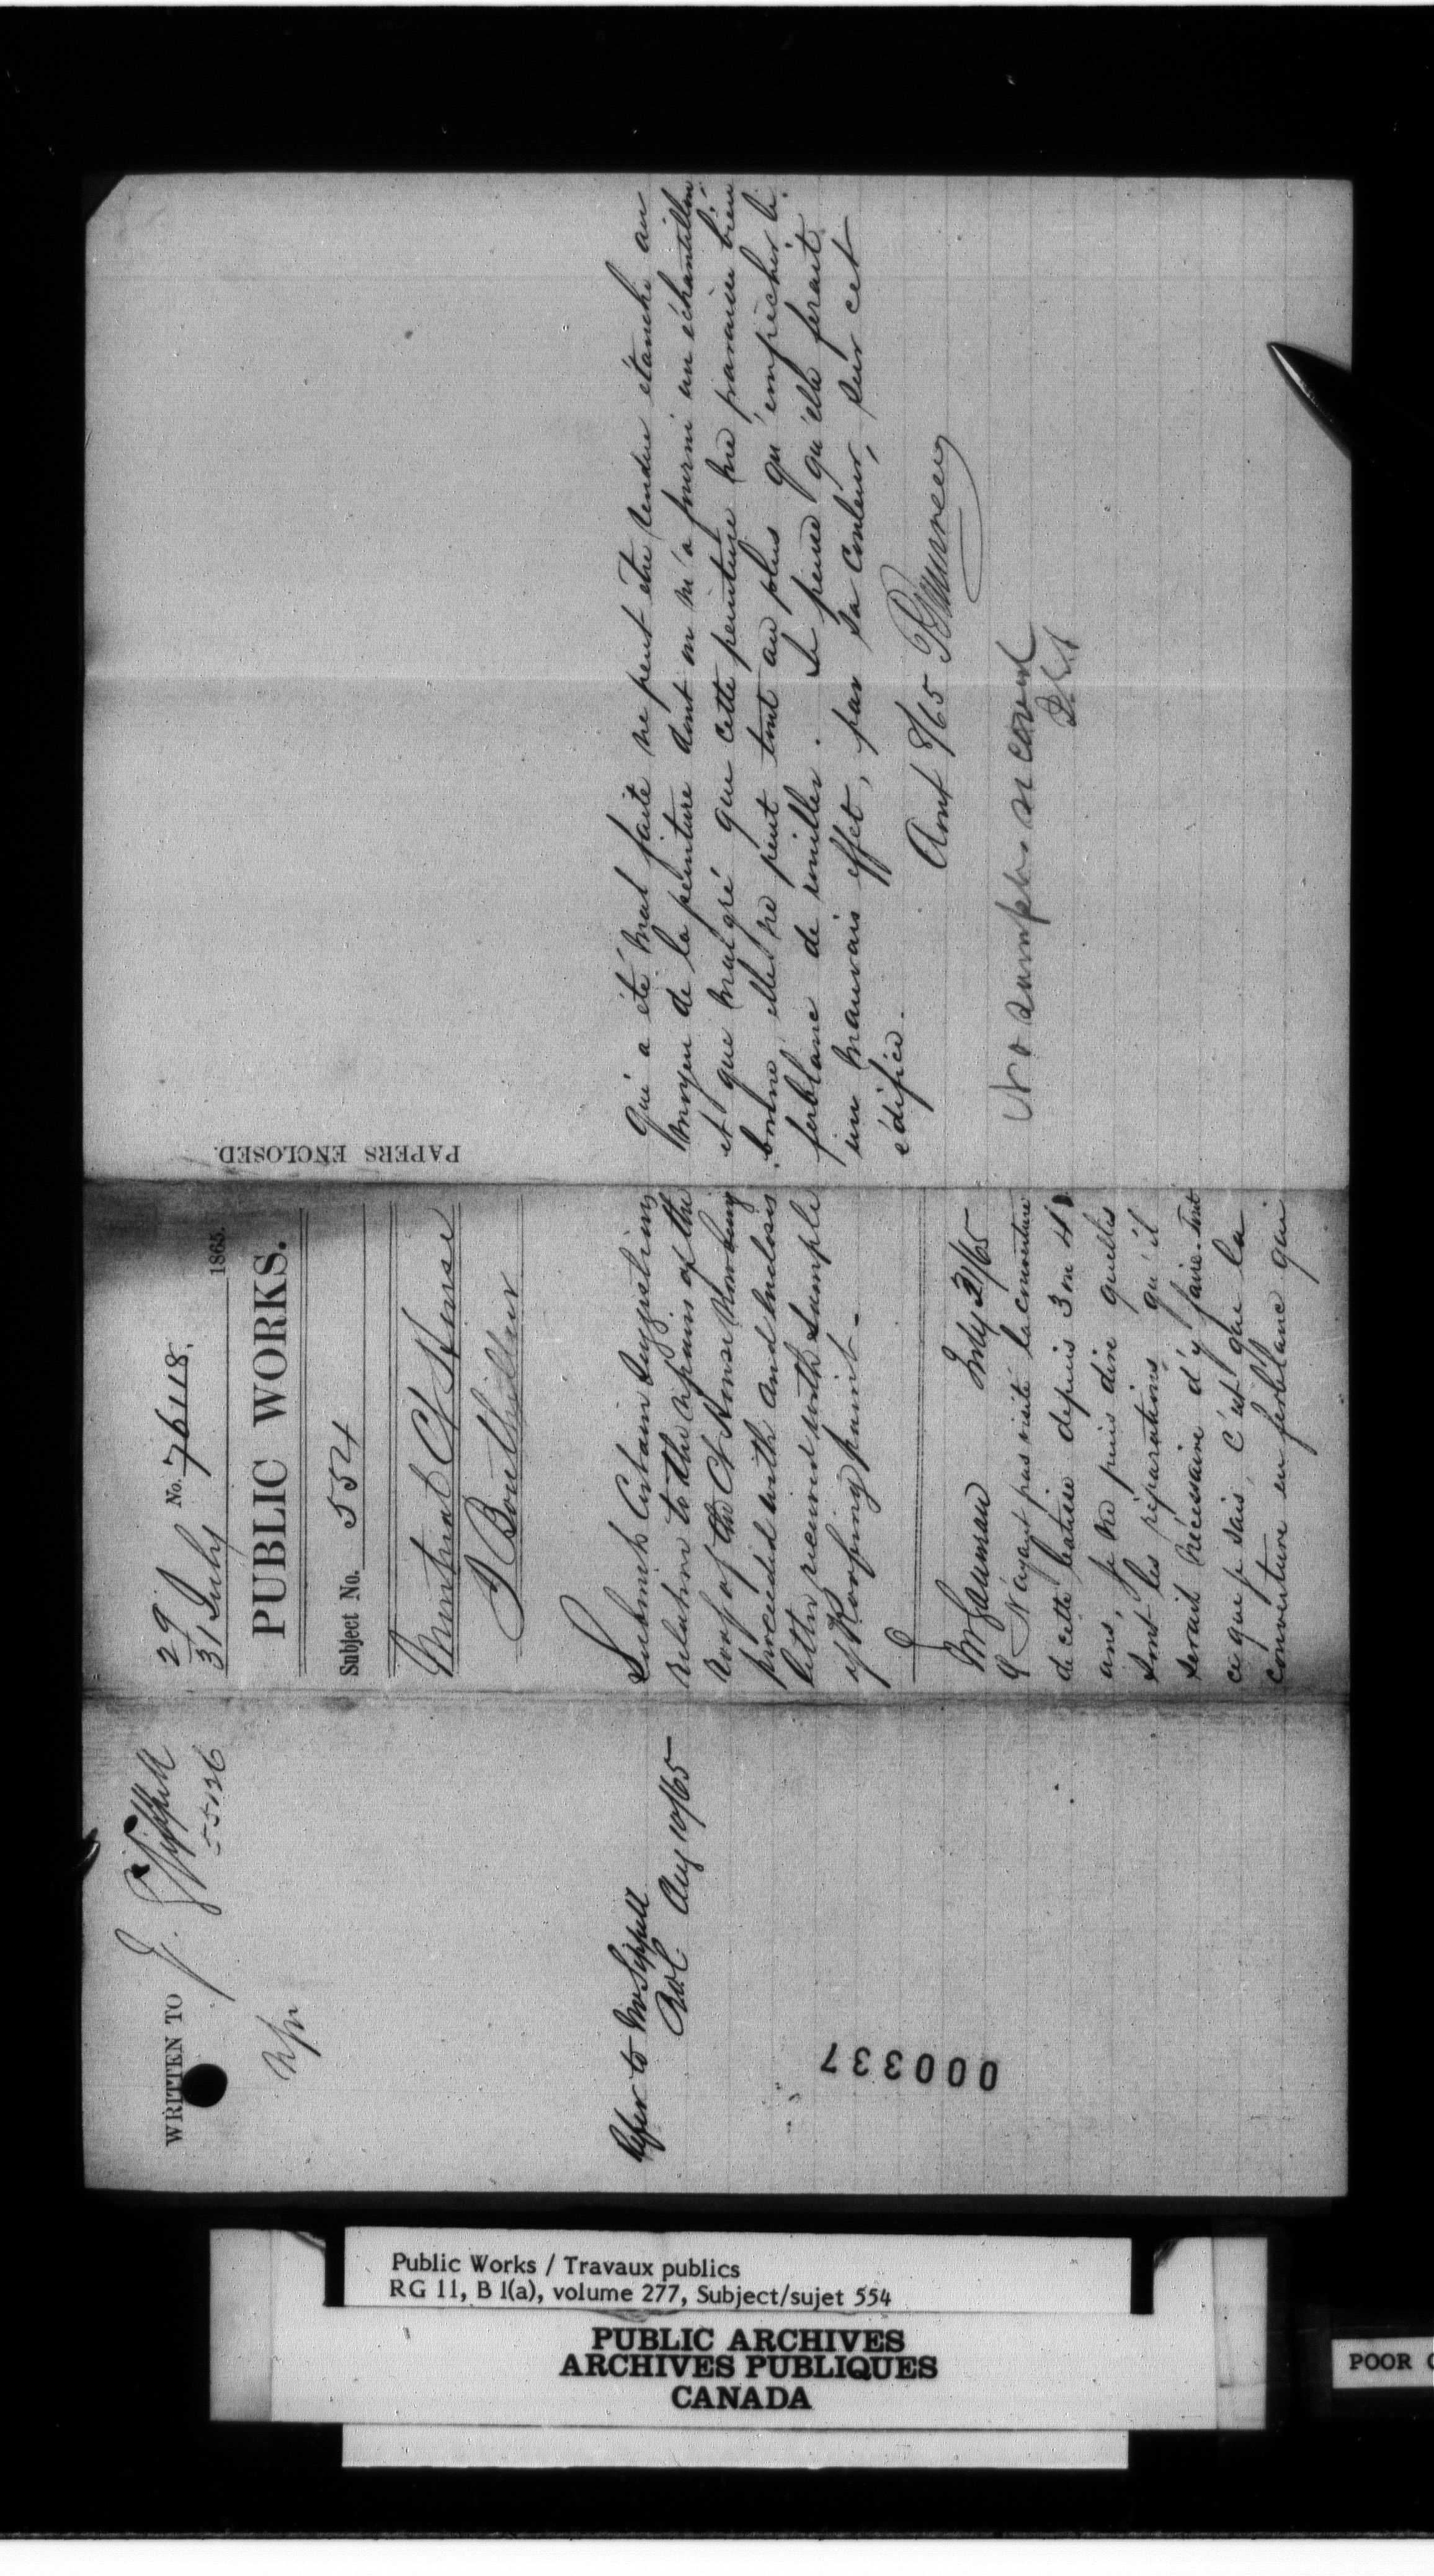 WRITTEN TO
J. G Sippell
55126
Refer to Mr Sippell
Aug 10/65
000337
29
31 July 1865.
No. 76118.
PUBLIC WORKS.
Subject No. 554
Montreal Ct House
T Bouthillier
Submits Certain Suggestions
relation to the repairs of the
roof of the Ct House now being
proceeded with and incloses
letter received with sample
of Roofing paint.
July 31/65
N'ayant pas visité la couverture
de cette batisse depuis 3 ou 4
ans, je ne puis dire quelles
sont les réparations qu'il
serait nécessaire d'y faire. Tout
ce que je sais, c'est que la
couverture en ferblanc qui
PAPERS ENCLOSED.
qui a été mal faite ne peut être rendue étanche au
moyen de la peinture dont on m'a fourni un échantillon
et que malgré que cette peinture me paraisse bien
bonne elle ne peut tout au plus qu'empêcher le
ferblanc de rouiller. Je pense qu'elle ferait
un mauvais effet, par sa couleur, sur cet
édifice.
Aout 8/65
No samples received
Public Works / Travaux publics
RG 11, B 1(a), volume 277, Subject/sujet 554
PUBLIC ARCHIVES
ARCHIVES PUBLIQUES
CANADA
POOR